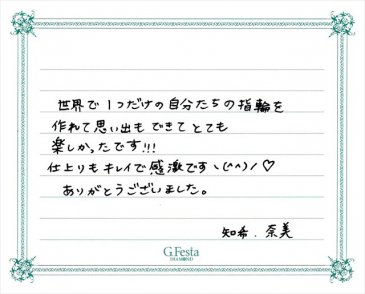 世界で1つだけの自分たちの指輪を
作れて思い出もできてとても
楽しかったです!!!
仕上りもキレイで感激ですヽ(^^)ノ♡
ありがとうございました。
知希.奈美
G.Festa
DIAMOND